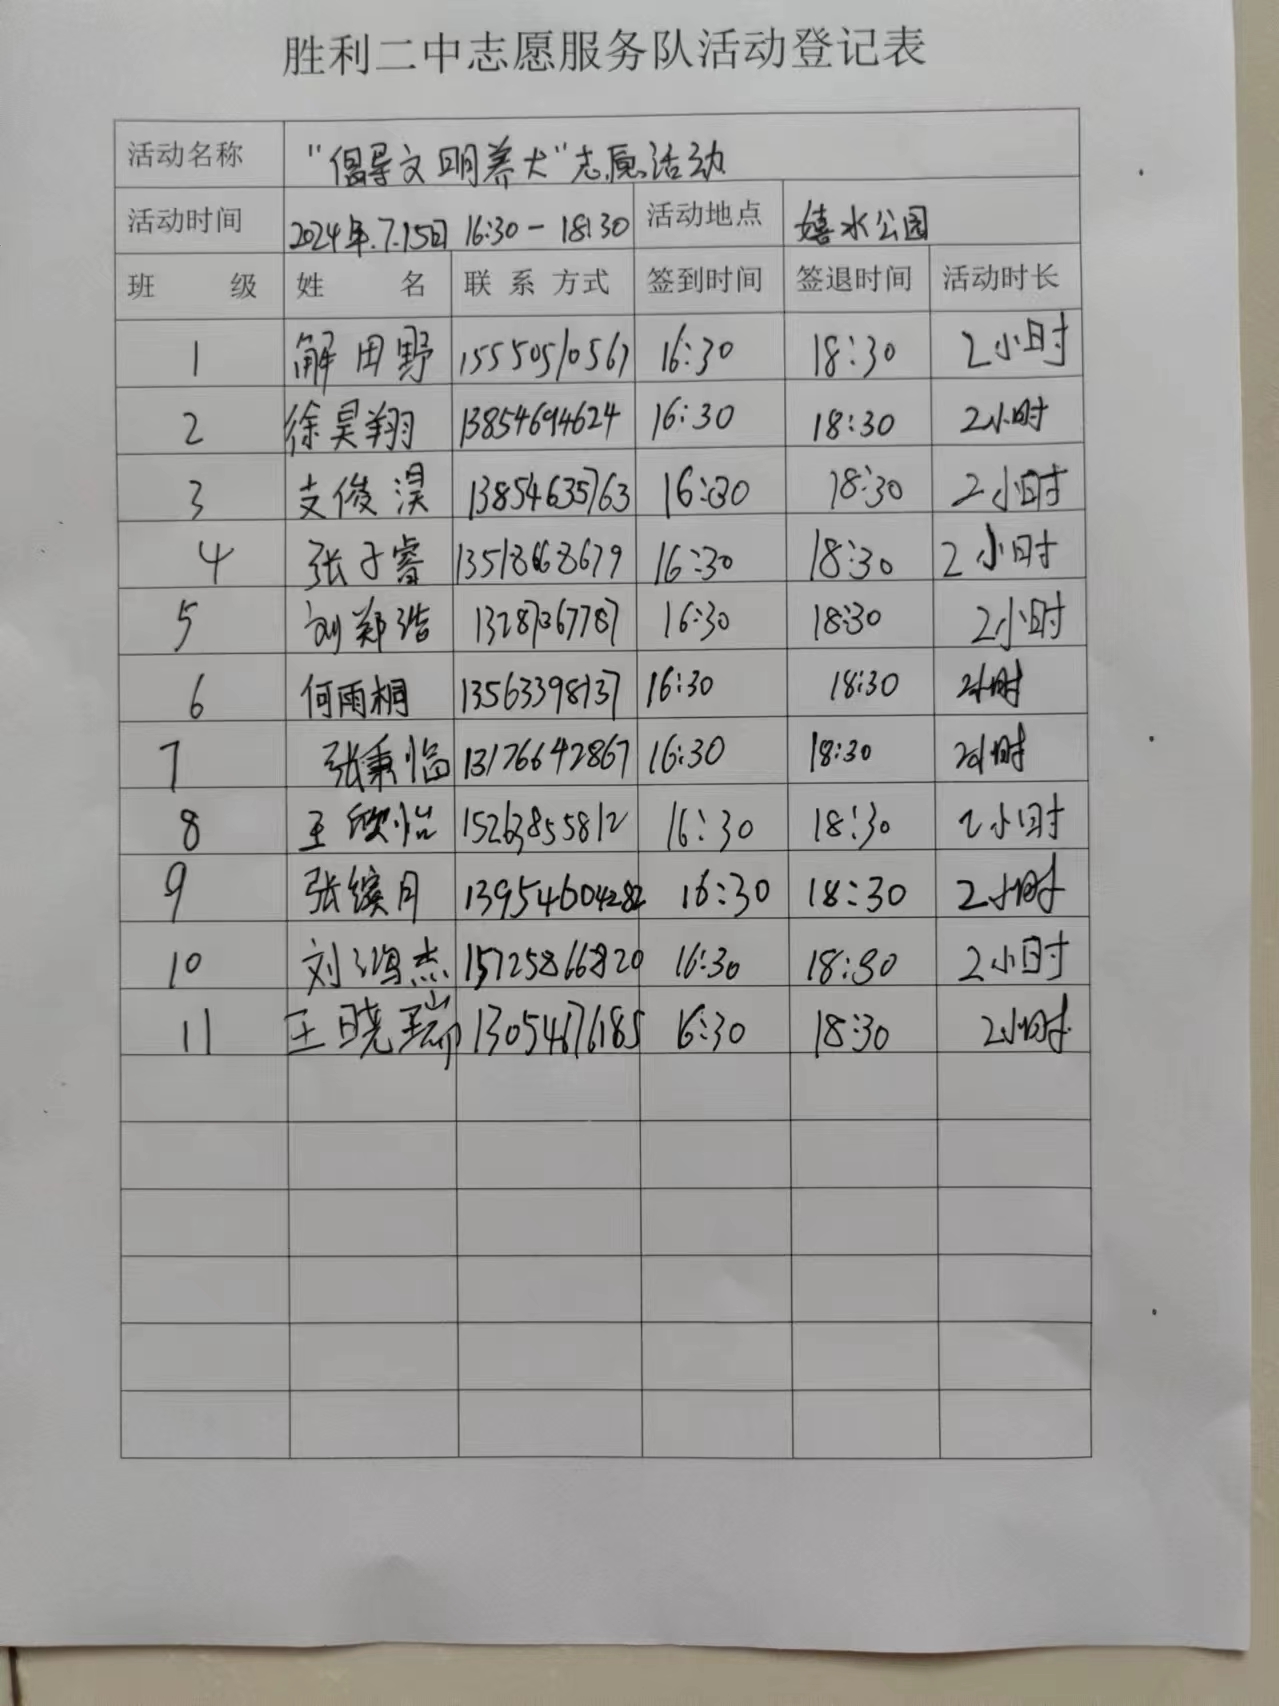 胜利二中志愿服务队活动登记表
活动名称 “倡导文明养犬”志愿活动
活动时间 2024年.7.15日 16:30-18:30 活动地点 嬉水公园
班 级 姓 名 联系方式 签到时间 签退时间 活动时长
1 解田野 15550510567 16:30 18:30 2小时
2 徐昊翔 13854694624 16:30 18:30 2小时
3 支俊淏 13854635763 16:30 18:30 2小时
4 张子睿 13518668679 16:30 18:30 2小时
5 刘郑浩 16:30 18:30 2小时
6 何雨桐 13563398137 16:30 18:30 2小时
7 张秉临 13176642867 16:30 18:30 2小时
8 王欣怡 15263855812 16:30 18:30 2小时
9 张缤月 13954604282 16:30 18:30 2小时
10 刘鸿杰 15725866820 16:30 18:30 2小时
11 王晓瑞 13054676185 16:30 18:30 2小时